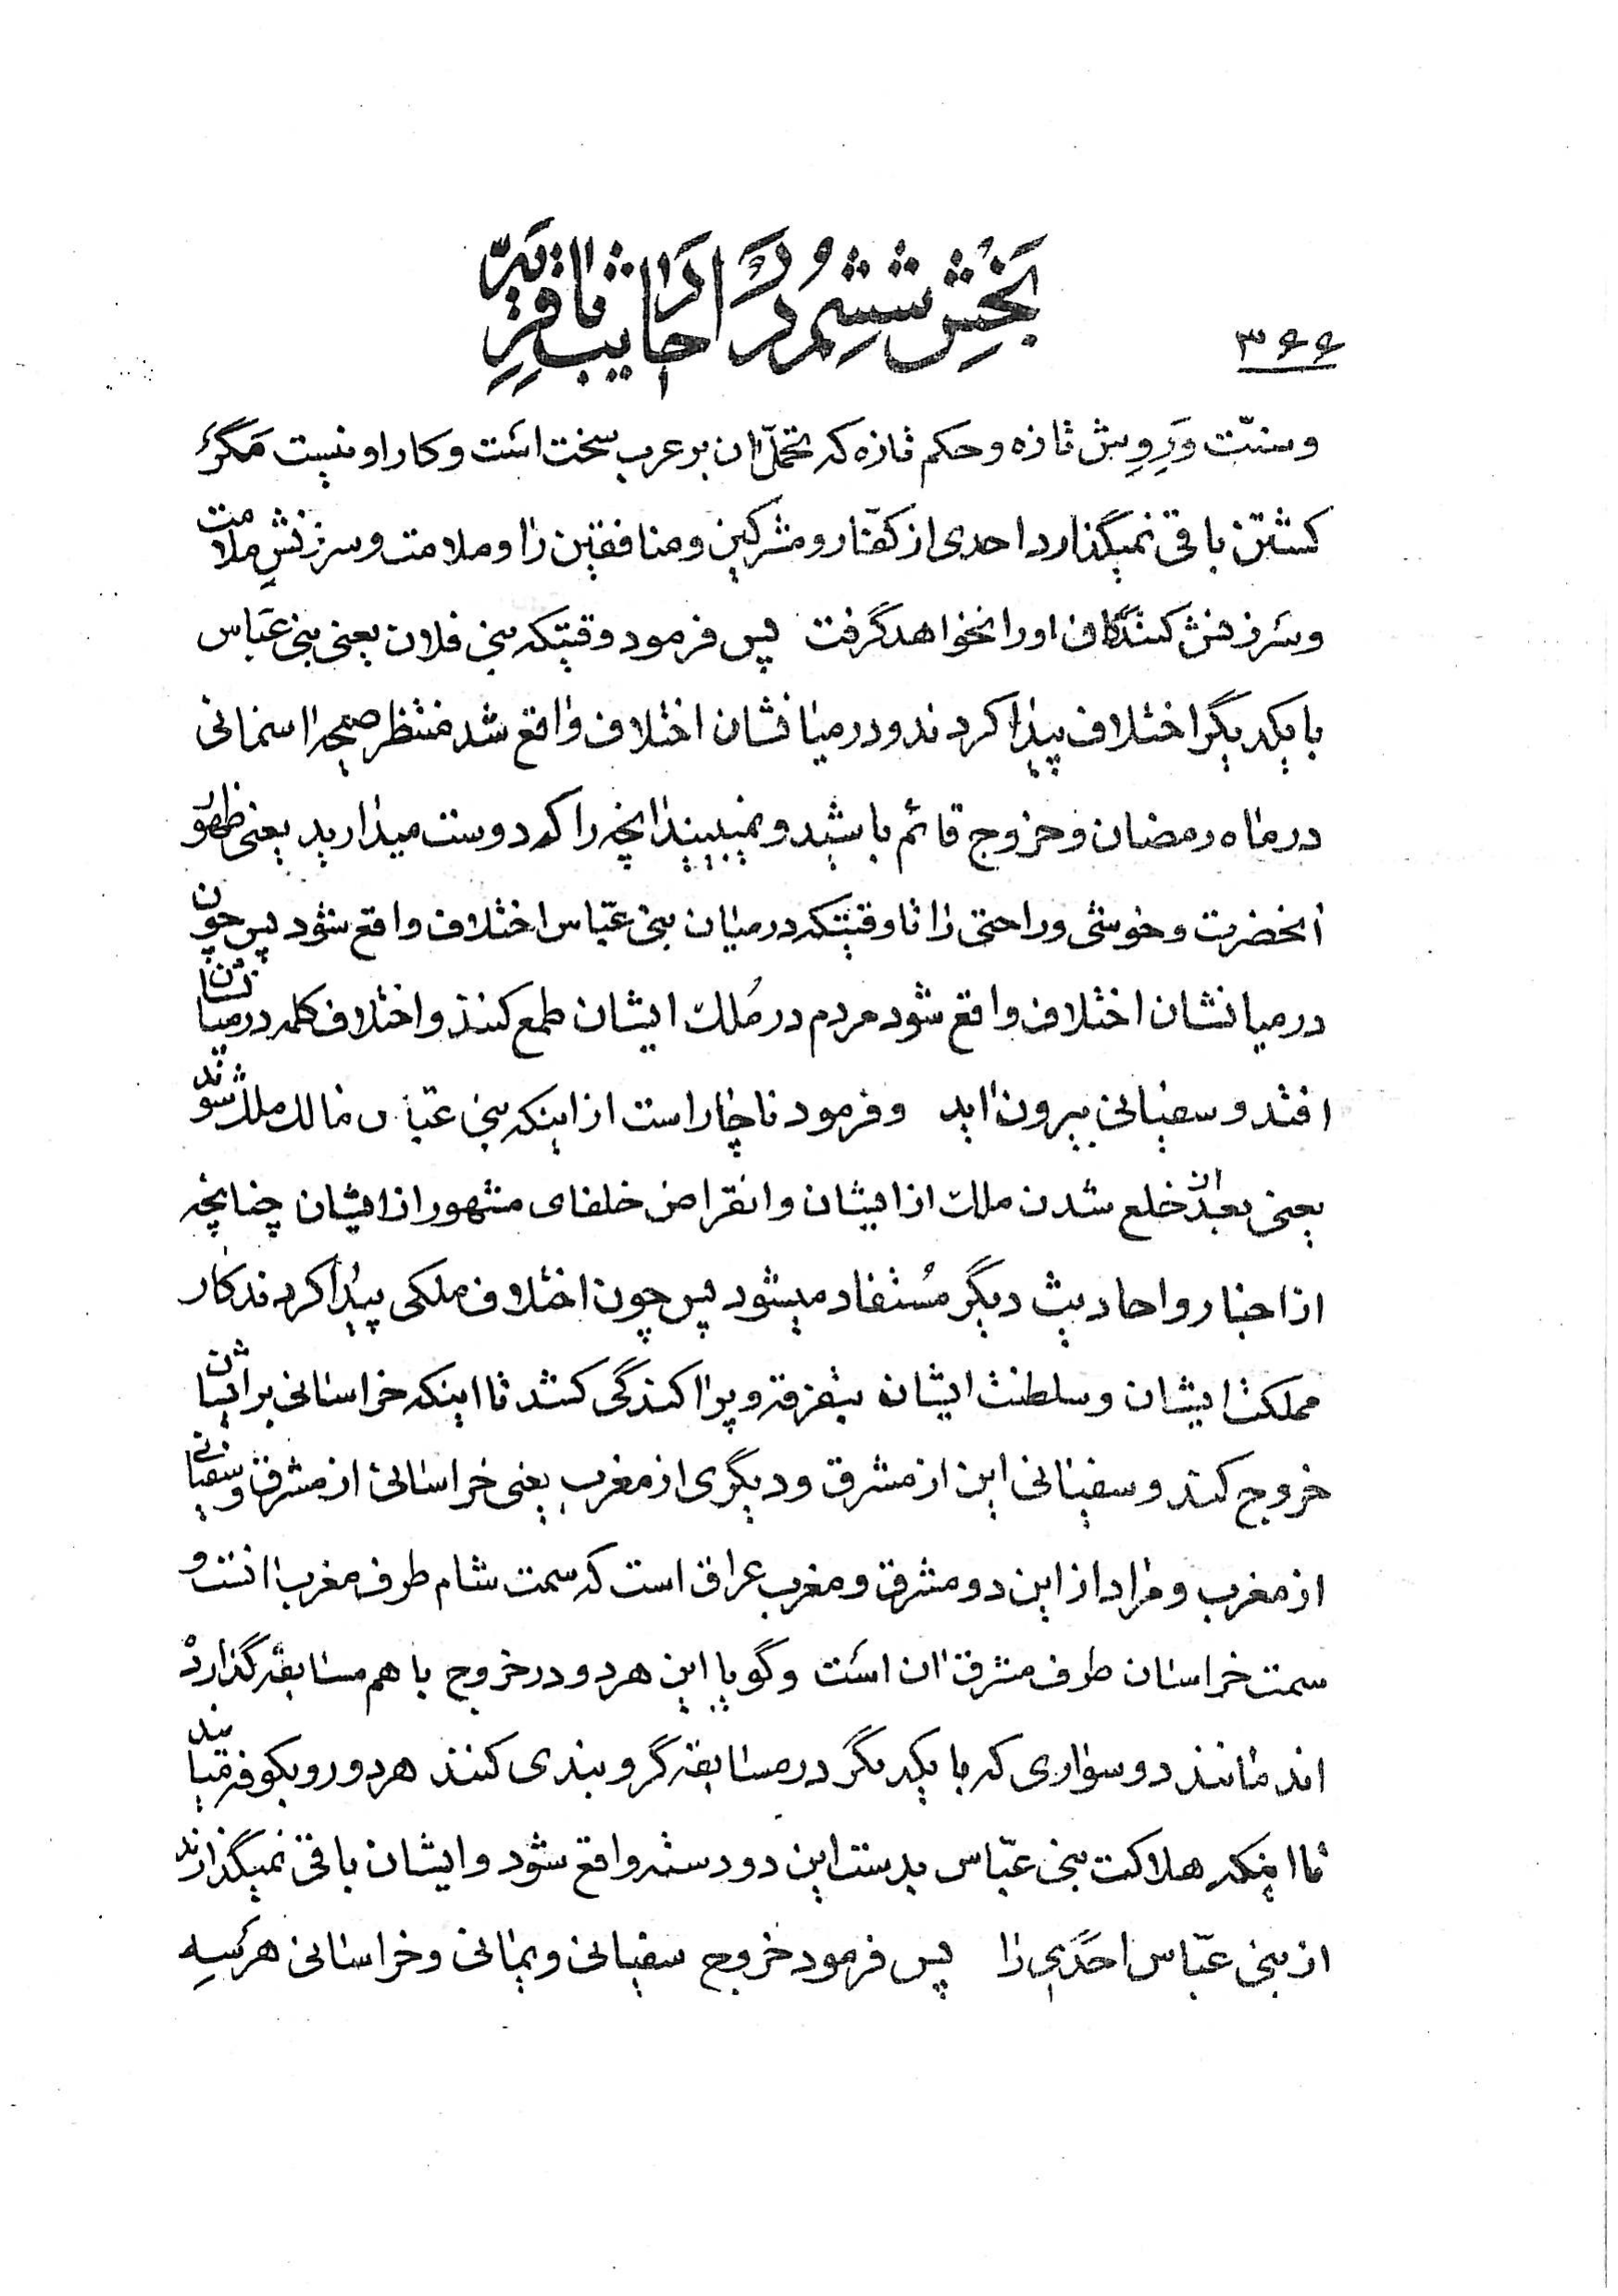 بَخْشِ شِشُمْ دَرْ اَحادیثِ باقِرِیَّه
۳۶۶
و سنّت وَرِوِش تازه و حکم تازه که تحمّل ان بر عرب سخت اسَت و کار او نیست مَگَرْ
کشتن باقی نمیگذارد احدی از کفّار و مشرکین و منافقین را و ملامت و سرزنشِ ملامت
و سَرزنش کنندگان او را نخواهد گرفت پس فرمود وقتیکه بنی فلان یعنی بنی عبّاس
با یکدیگر اختلاف پیدا کردند و در میانشان اختلاف واقع شد منتظر صیحهٔ اسمانی
در ماه رمضان و خروج قائم باشید و نمیبینید انچه را که دوست میدارید یعنی ظهور
انحضرت و خوشی و راحتی را تا وقتیکه در میان بنی عبّاس اختلاف واقع شود پس چون
در میانشان اختلاف واقع شود مردم در مُلک ایشان طمع کنند و اختلاف کلمه در میانشان
افتد و سفیانی بیرون اید و فرمود ناچار است از اینکه بنی عبّاس مالک ملک شوند
یعنی بعد از خلع شدن ملک از ایشان و انقراض خلفای مشهور از ایشان چنانچه
از اخبار و احادیث دیگر مُستفاد میشود پس چون اختلاف ملکی پیدا کردند کار
مملکت ایشان و سلطنت ایشان بتفرقه و پراکندگی کشد تا اینکه خراسانی بر ایشان
خروج کند و سفیانی این از مشرق و دیگری از مغرب یعنی خراسانی از مشرق و سفیانی
از مغرب و مراد از این دو مشرق و مغرب عراق است که سمت شام طرف مغرب انست و
سمت خراسان طرف مشرق ان اسَت و گویا این هر دو در خروج با هم مسابقه گذارد
اند مانند دو سواری که با یکدیگر در مسابقه گروبندی کنند هر دو رو بکوفه میایند
تا اینکه هلاکت بنی عبّاس بدست این دو دسته واقع شود و ایشان باقی نمیگذارند
از بنی عبّاس احَدی را پس فرمود خروج سفیانی و یمانی و خراسانی هر سِه